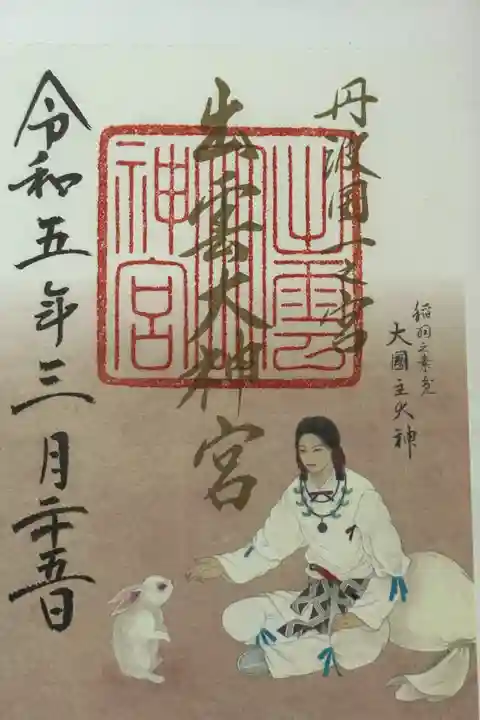 丹波国一之宮
出雲大神宮
出雲大神宮
令和五年三月二十五日
稲羽之素兎
大國主大神